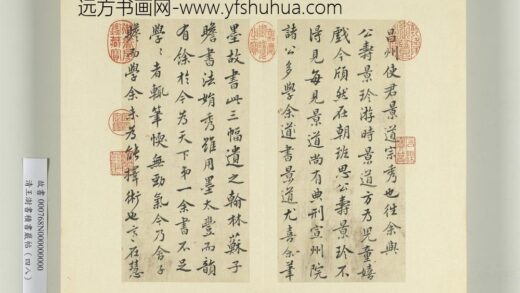 远方书画网-www.yfshuhua.com
昌州使君景道宗秀也往余與
公壽景珍游時景道方乃兒童嬉
戲今頎然在朝班思公壽景珍不
得見每見景道尚有典刑宣州院
諸公多學余道書景道尤喜余筆
墨故書此三幅遺之翰林蘇子
瞻書法娟秀雖用墨太豐而韻
有餘於今為天下第一余書不足
學〻者輒筆愞無勁氣今乃舍子
瞻而學余未為能擇術也言在慧
故書 000768N000000000
清王澍書積書巖帖(四八)